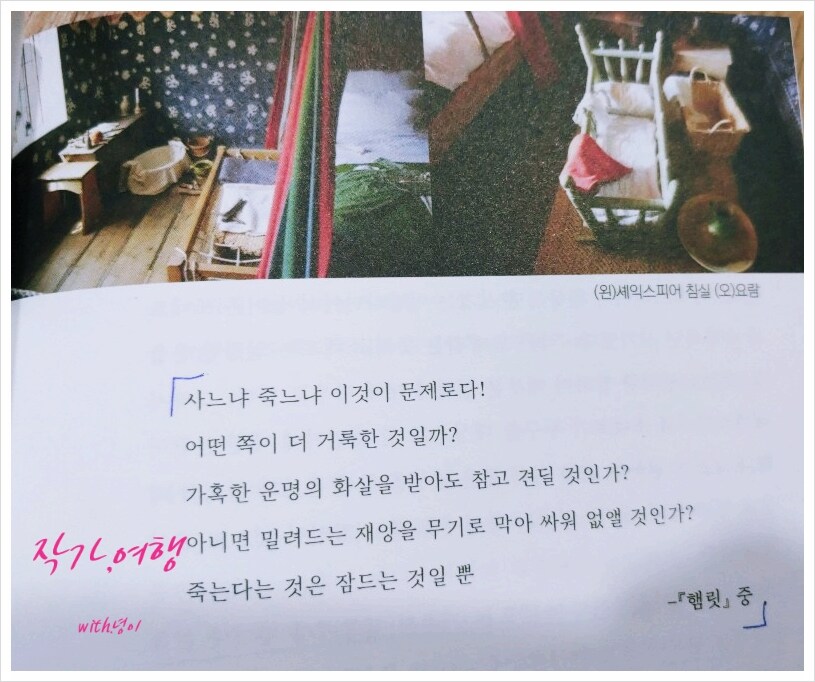 (왼)셰익스피어 침실 (오)요람
사느냐 죽느냐 이것이 문제로다!
어떤 쪽이 더 거룩한 것일까?
가혹한 운명의 화살을 받아도 참고 견딜 것인가?
아니면 밀려드는 재앙을 무기로 막아 싸워 없앨 것인가?
죽는다는 것은 잠드는 것일 뿐
-『햄릿』 중
작가.여행
with.녕이